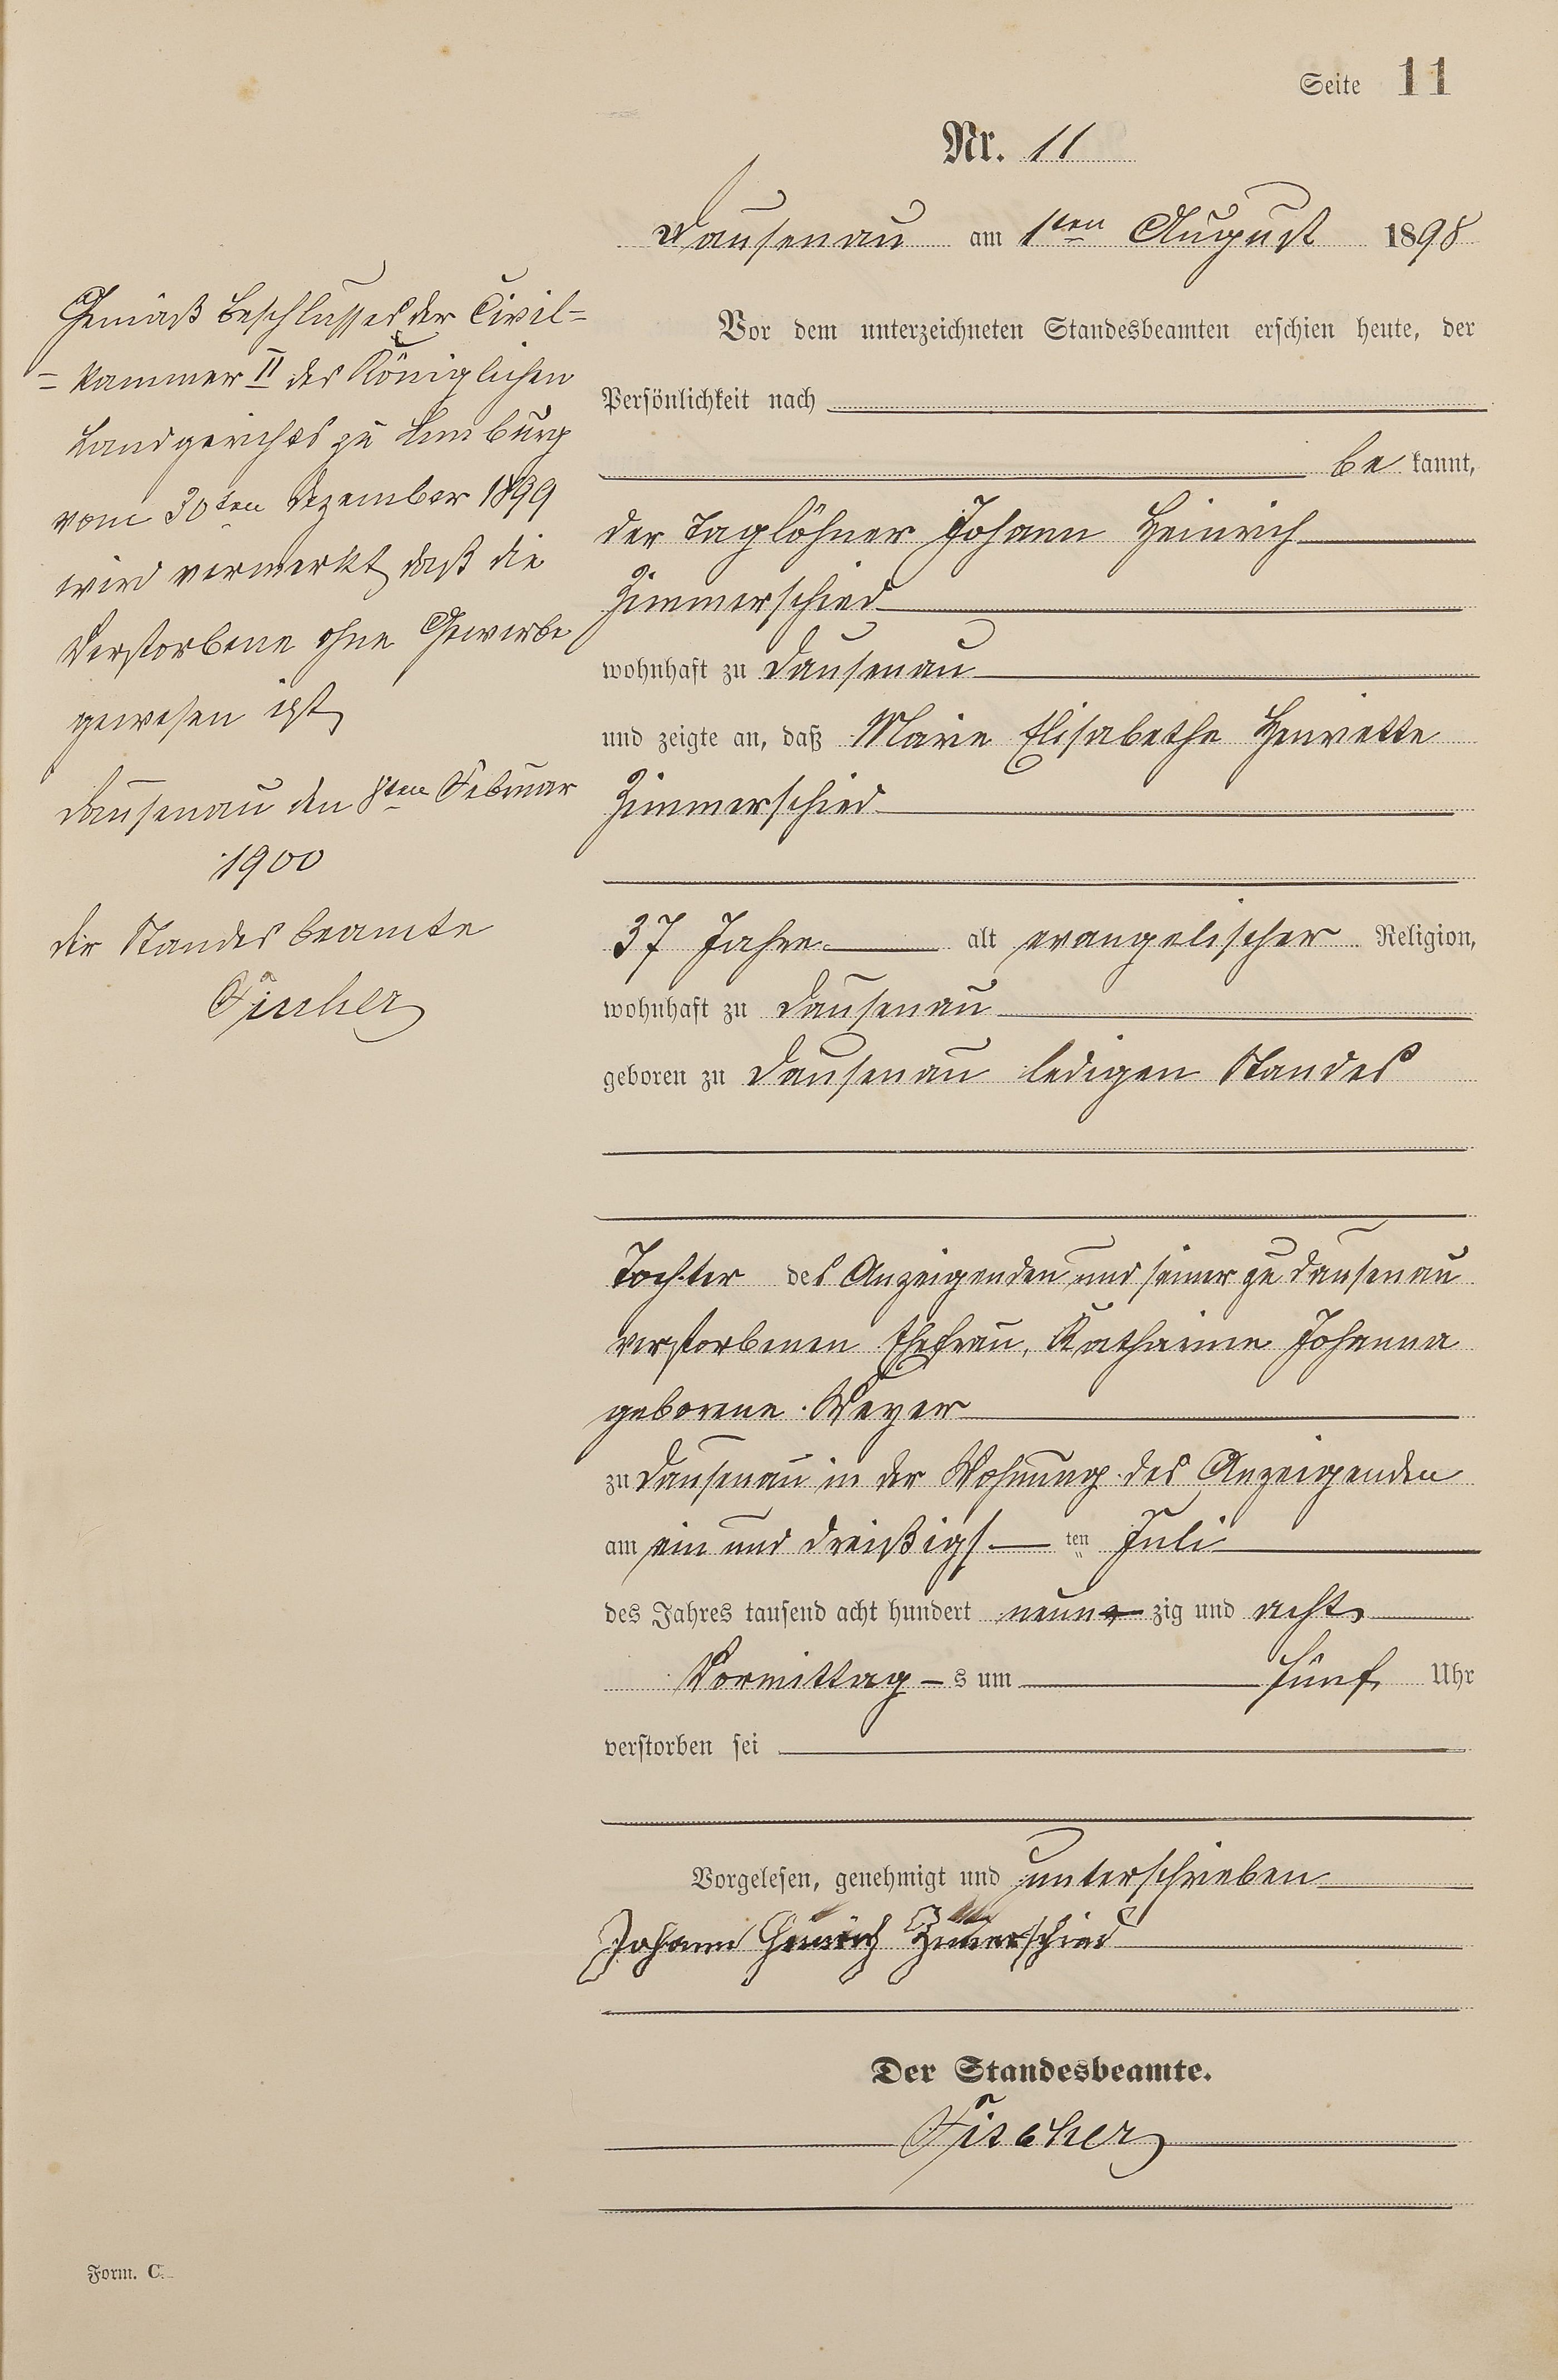 Seite 11
Nr. 11
Dausenau am 1ten August 1898
Vor dem unterzeichneten Standesbeamten erschien heute, der
Persönlichkeit nach
be kannt,
der Taglöhner Johann Heinrich
Zimmerschied
wohnhaft zu Dausenau
und zeigte an, daß Marie Elisabethe Henriette
Zimmerschied
37 Jahre alt evangelischer Religion,
wohnhaft zu Dausenau
geboren zu Dausenau ledigen Standes
Tochter des Anzeigenden und seiner zu Dausenau
verstorbenen Ehefrau, Katharine Johanna
geborene Meyer
zu Dausenau in der Wohnung des Anzeigenden
am ein und dreißigs ten Juli
des Jahres tausend acht hundert neun zig und acht
Vormittag s um fünf Uhr
verstorben sei
Vorgelesen, genehmigt und unterschrieben
Johann Heinrich Zimerschied
Der Standesbeamte.
Fischer
Gemäß Beschlusses der Civil=
=kammer II des Königlichen
Landgerichts zu Limburg
vom 30ten Dezember 1899
wird vermerkt, daß die
Verstorbene ohne Gewerbe
gewesen ist,
Dausenau den 8ten Februar
1900
der Standesbeamte
Fischer
Form. C.